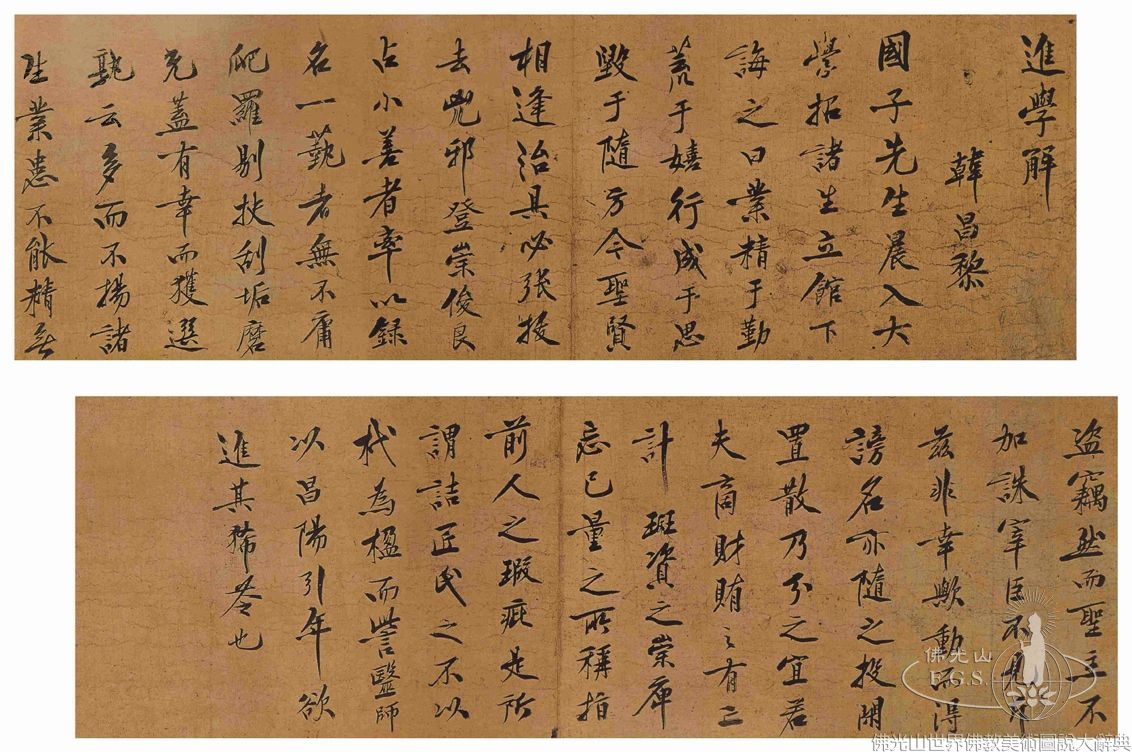 進學解
韓昌黎
國子先生晨入大
學招諸生立館下
誨之曰業精于勤
荒于嬉行成于思
毀于隨方今聖賢
相逢治具必張拔
去兇邪登崇俊良
占小善者率以録
名一藝者無不庸
爬羅剔抉刮垢磨
光蓋有幸而獲選
孰云多而不揚諸
生業患不能精無
盜竊然而聖主不
加誅宰臣不見斥
茲非幸歟動而得
謗名亦隨之投閒
置散乃分之宜若
夫商財賄之有亡
計班資之崇庳
忘已量之所稱指
前人之瑕疵是所
謂詰匠氏之不以
杙為楹而訾醫師
以昌陽引年欲
進其豨苓也
佛光山
F.G.S.
佛光山世界佛教美術圖說大辭典